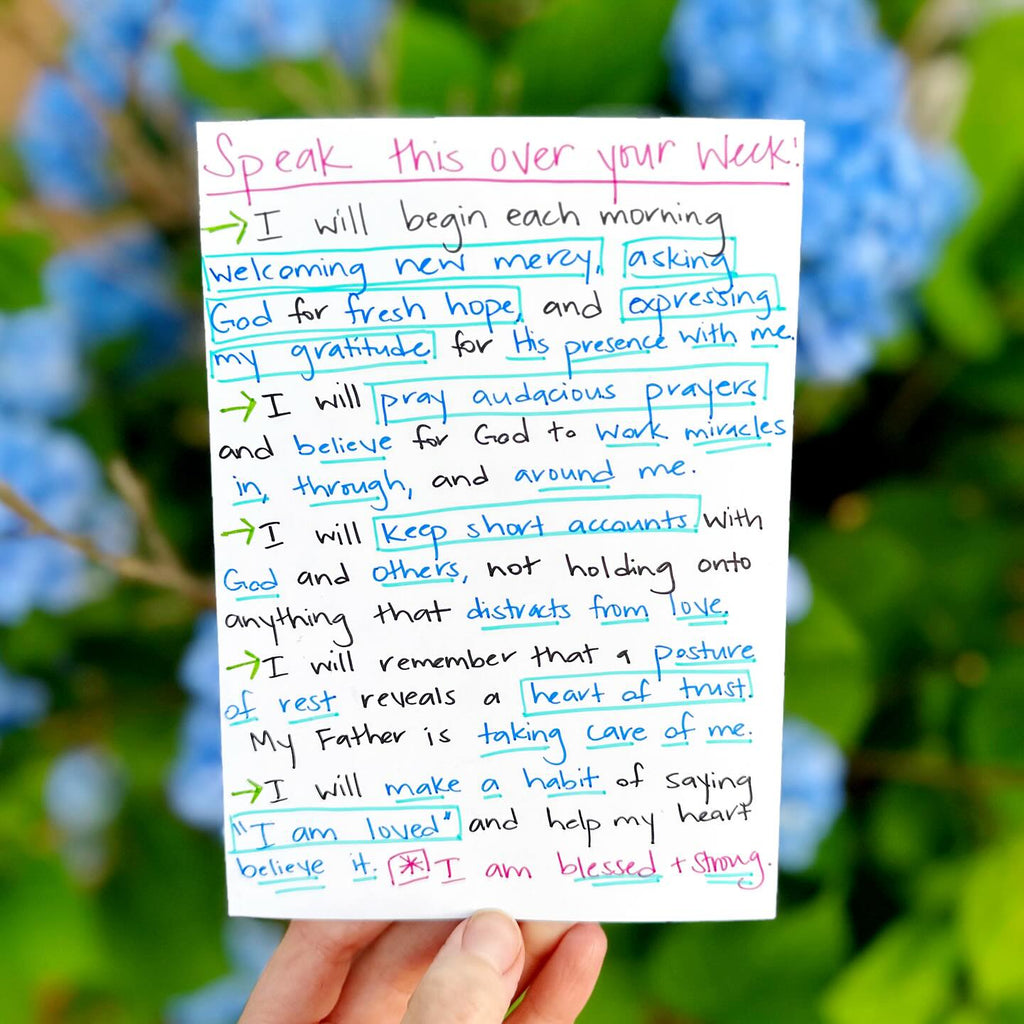 Speak this over your Week!
→ I will begin each morning
welcoming new mercy, asking
God for fresh hope, and expressing
my gratitude for His presence with me.
→ I will pray audacious prayers
and believe for God to work miracles
in, through, and around me.
→ I will keep short accounts with
God and others, not holding onto
anything that distracts from love.
→ I will remember that a posture
of rest reveals a heart of trust.
My Father is taking care of me.
→ I will make a habit of saying
"I am loved" and help my heart
believe it. * I am blessed + strong.